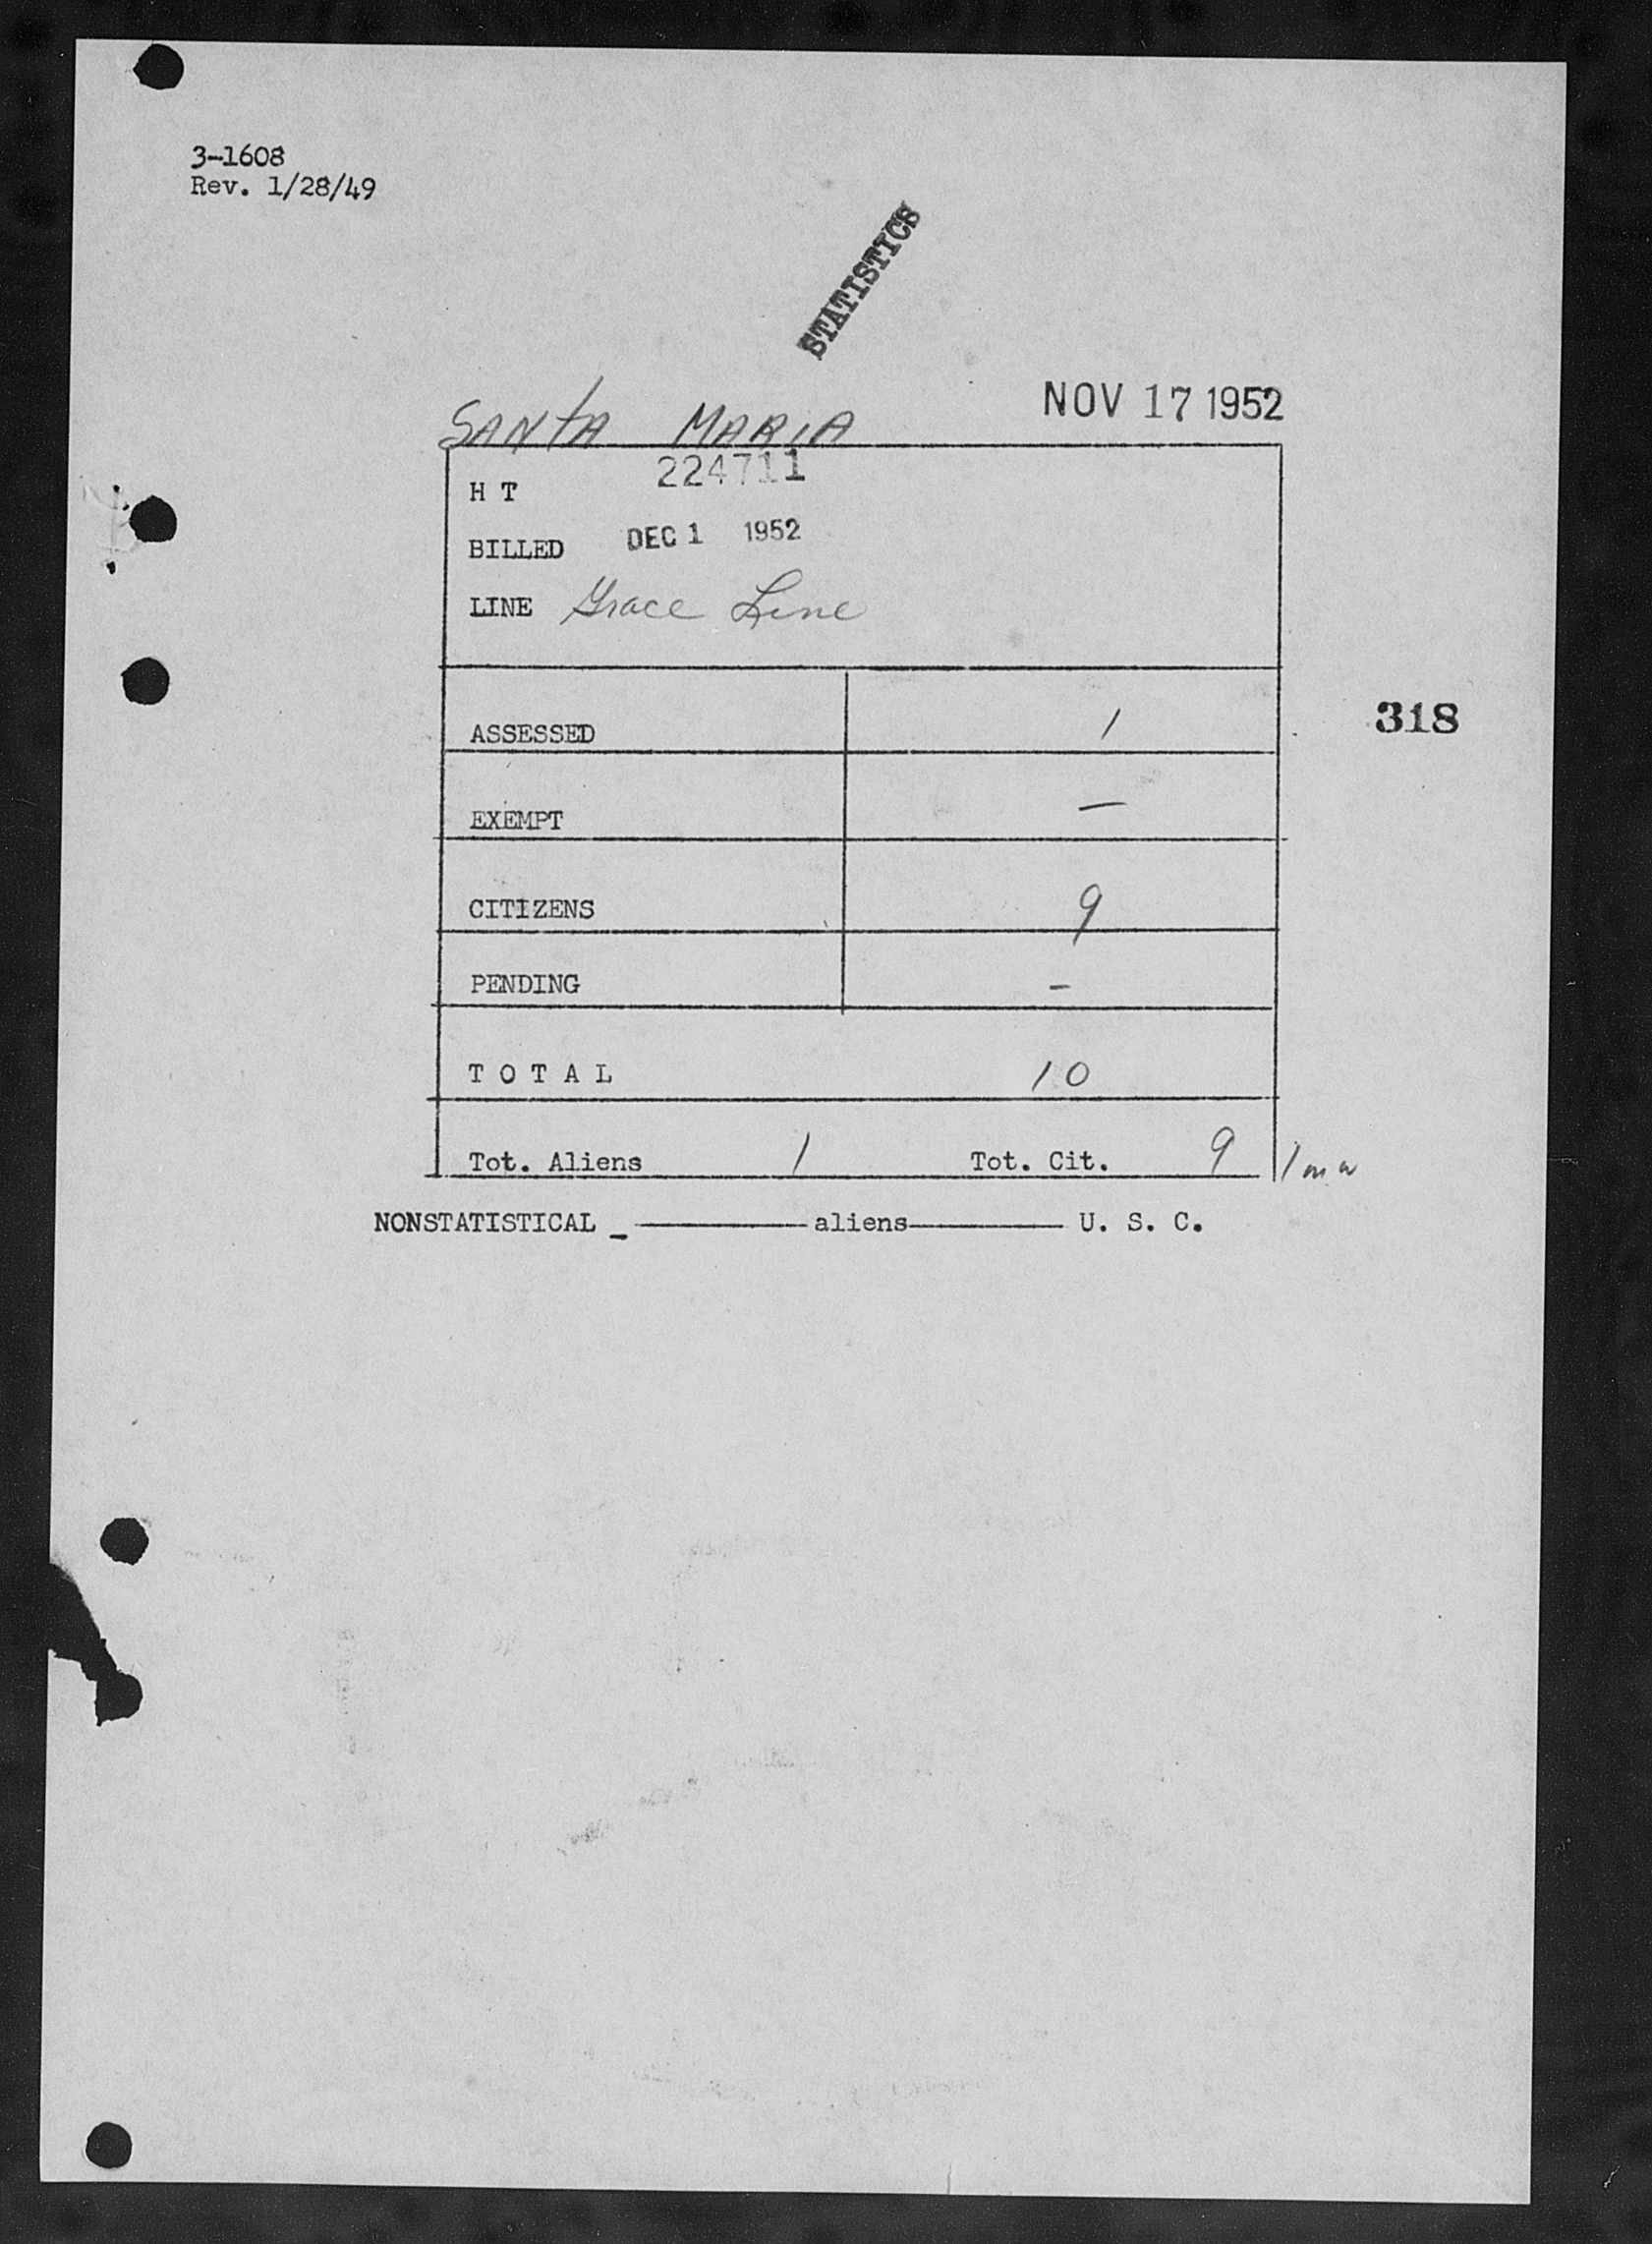 3-1608
Rev. 1/28/49
STATISTICS
SANTA MARIA NOV 17 1952
H T 224711
BILLED DEC 1 1952
LINE Grace Line
ASSESSED 1
318
EXEMPT —
CITIZENS 9
PENDING -
T O T A L 10
Tot. Aliens 1 Tot. Cit. 9 1
NONSTATISTICAL _ ———— aliens ———— U. S. C.